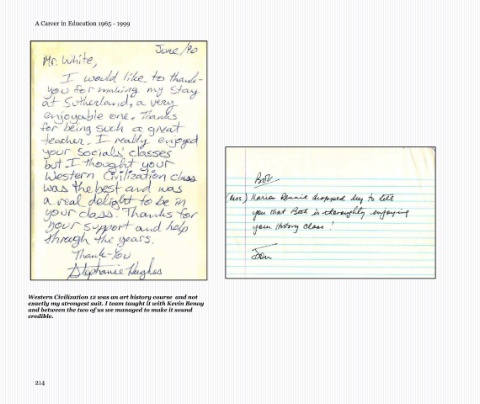 A Career in Education 1965 - 1999
June/90
Mr. White,
I would like to thank-
you for making my stay
at Sutherland, a very
enjoyable one. Thanks
for being such a great
teacher. I really enjoyed
your Socials' classes
but I thought your
Western Civilization class
was the best and was
a real delight to be in
your class. Thanks for
your support and help
through the years.
Thank-You
Stephanie Hughes
Bob
(Mrs.) Karen Rennie dropped by to tell
you that Beth is thoroughly enjoying
your History class!
Western Civilization 12 was an art history course and not
exactly my strongest suit. I team taught it with Kevin Benay
and between the two of us we managed to make it sound
credible.
214